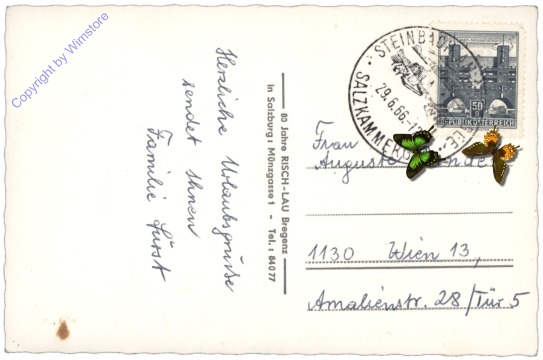 Copyright by Wimstore
Herzliche Urlaubsgrüsse
sendet Ihnen
Familie Fürst
80 Jahre RISCH-LAU Bregenz
In Salzburg: Münzgasse 1 - Tel.: 84077
STEINBACH
29.6.66
SALZKAMMERG
50
REPUBLIK ÖSTERREICH
Frau
Auguste
1130 Wien 13,
Amalienstr. 28/Tür 5